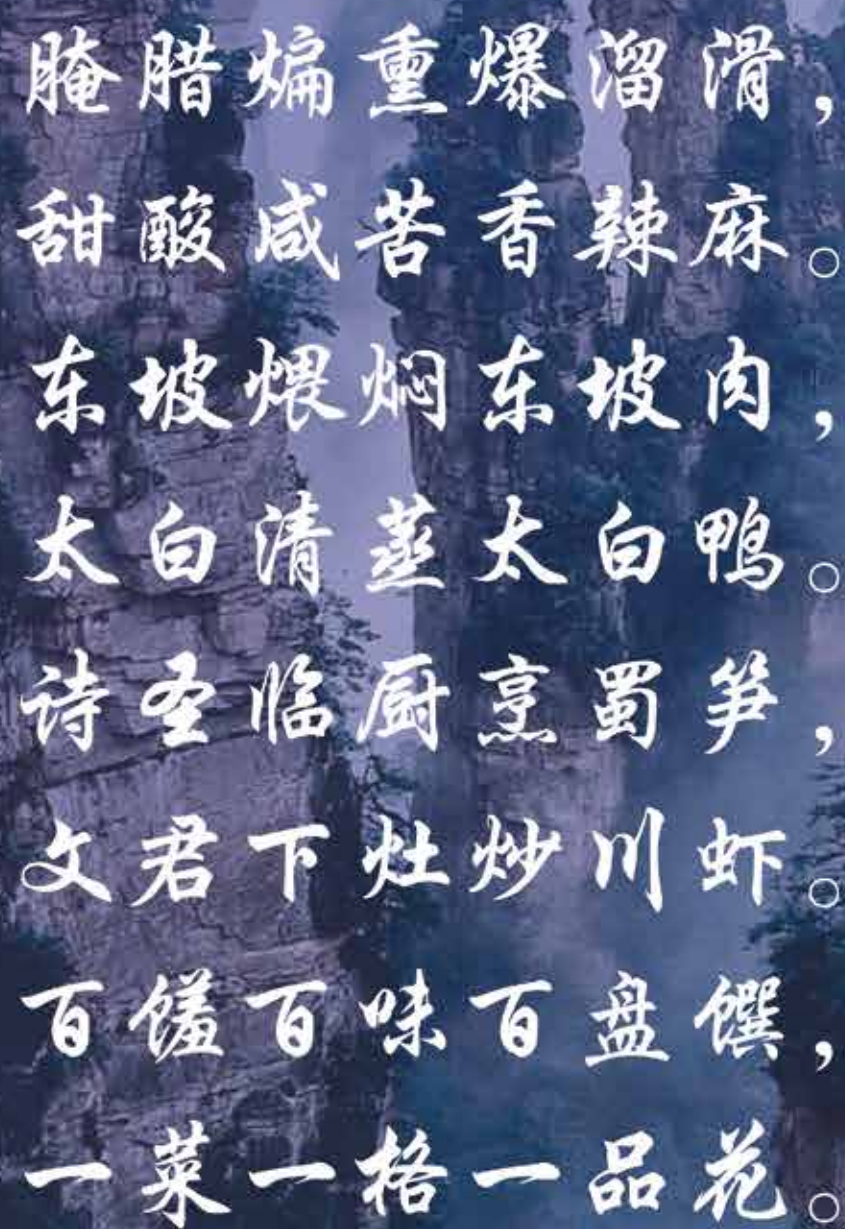 腌腊煸熏爆溜滑，
甜酸咸苦香辣麻。
东坡煨焖东坡肉，
太白清蒸太白鸭。
诗圣临厨烹蜀笋，
文君下灶炒川虾。
百馐百味百盘馔，
一菜一格一品花。